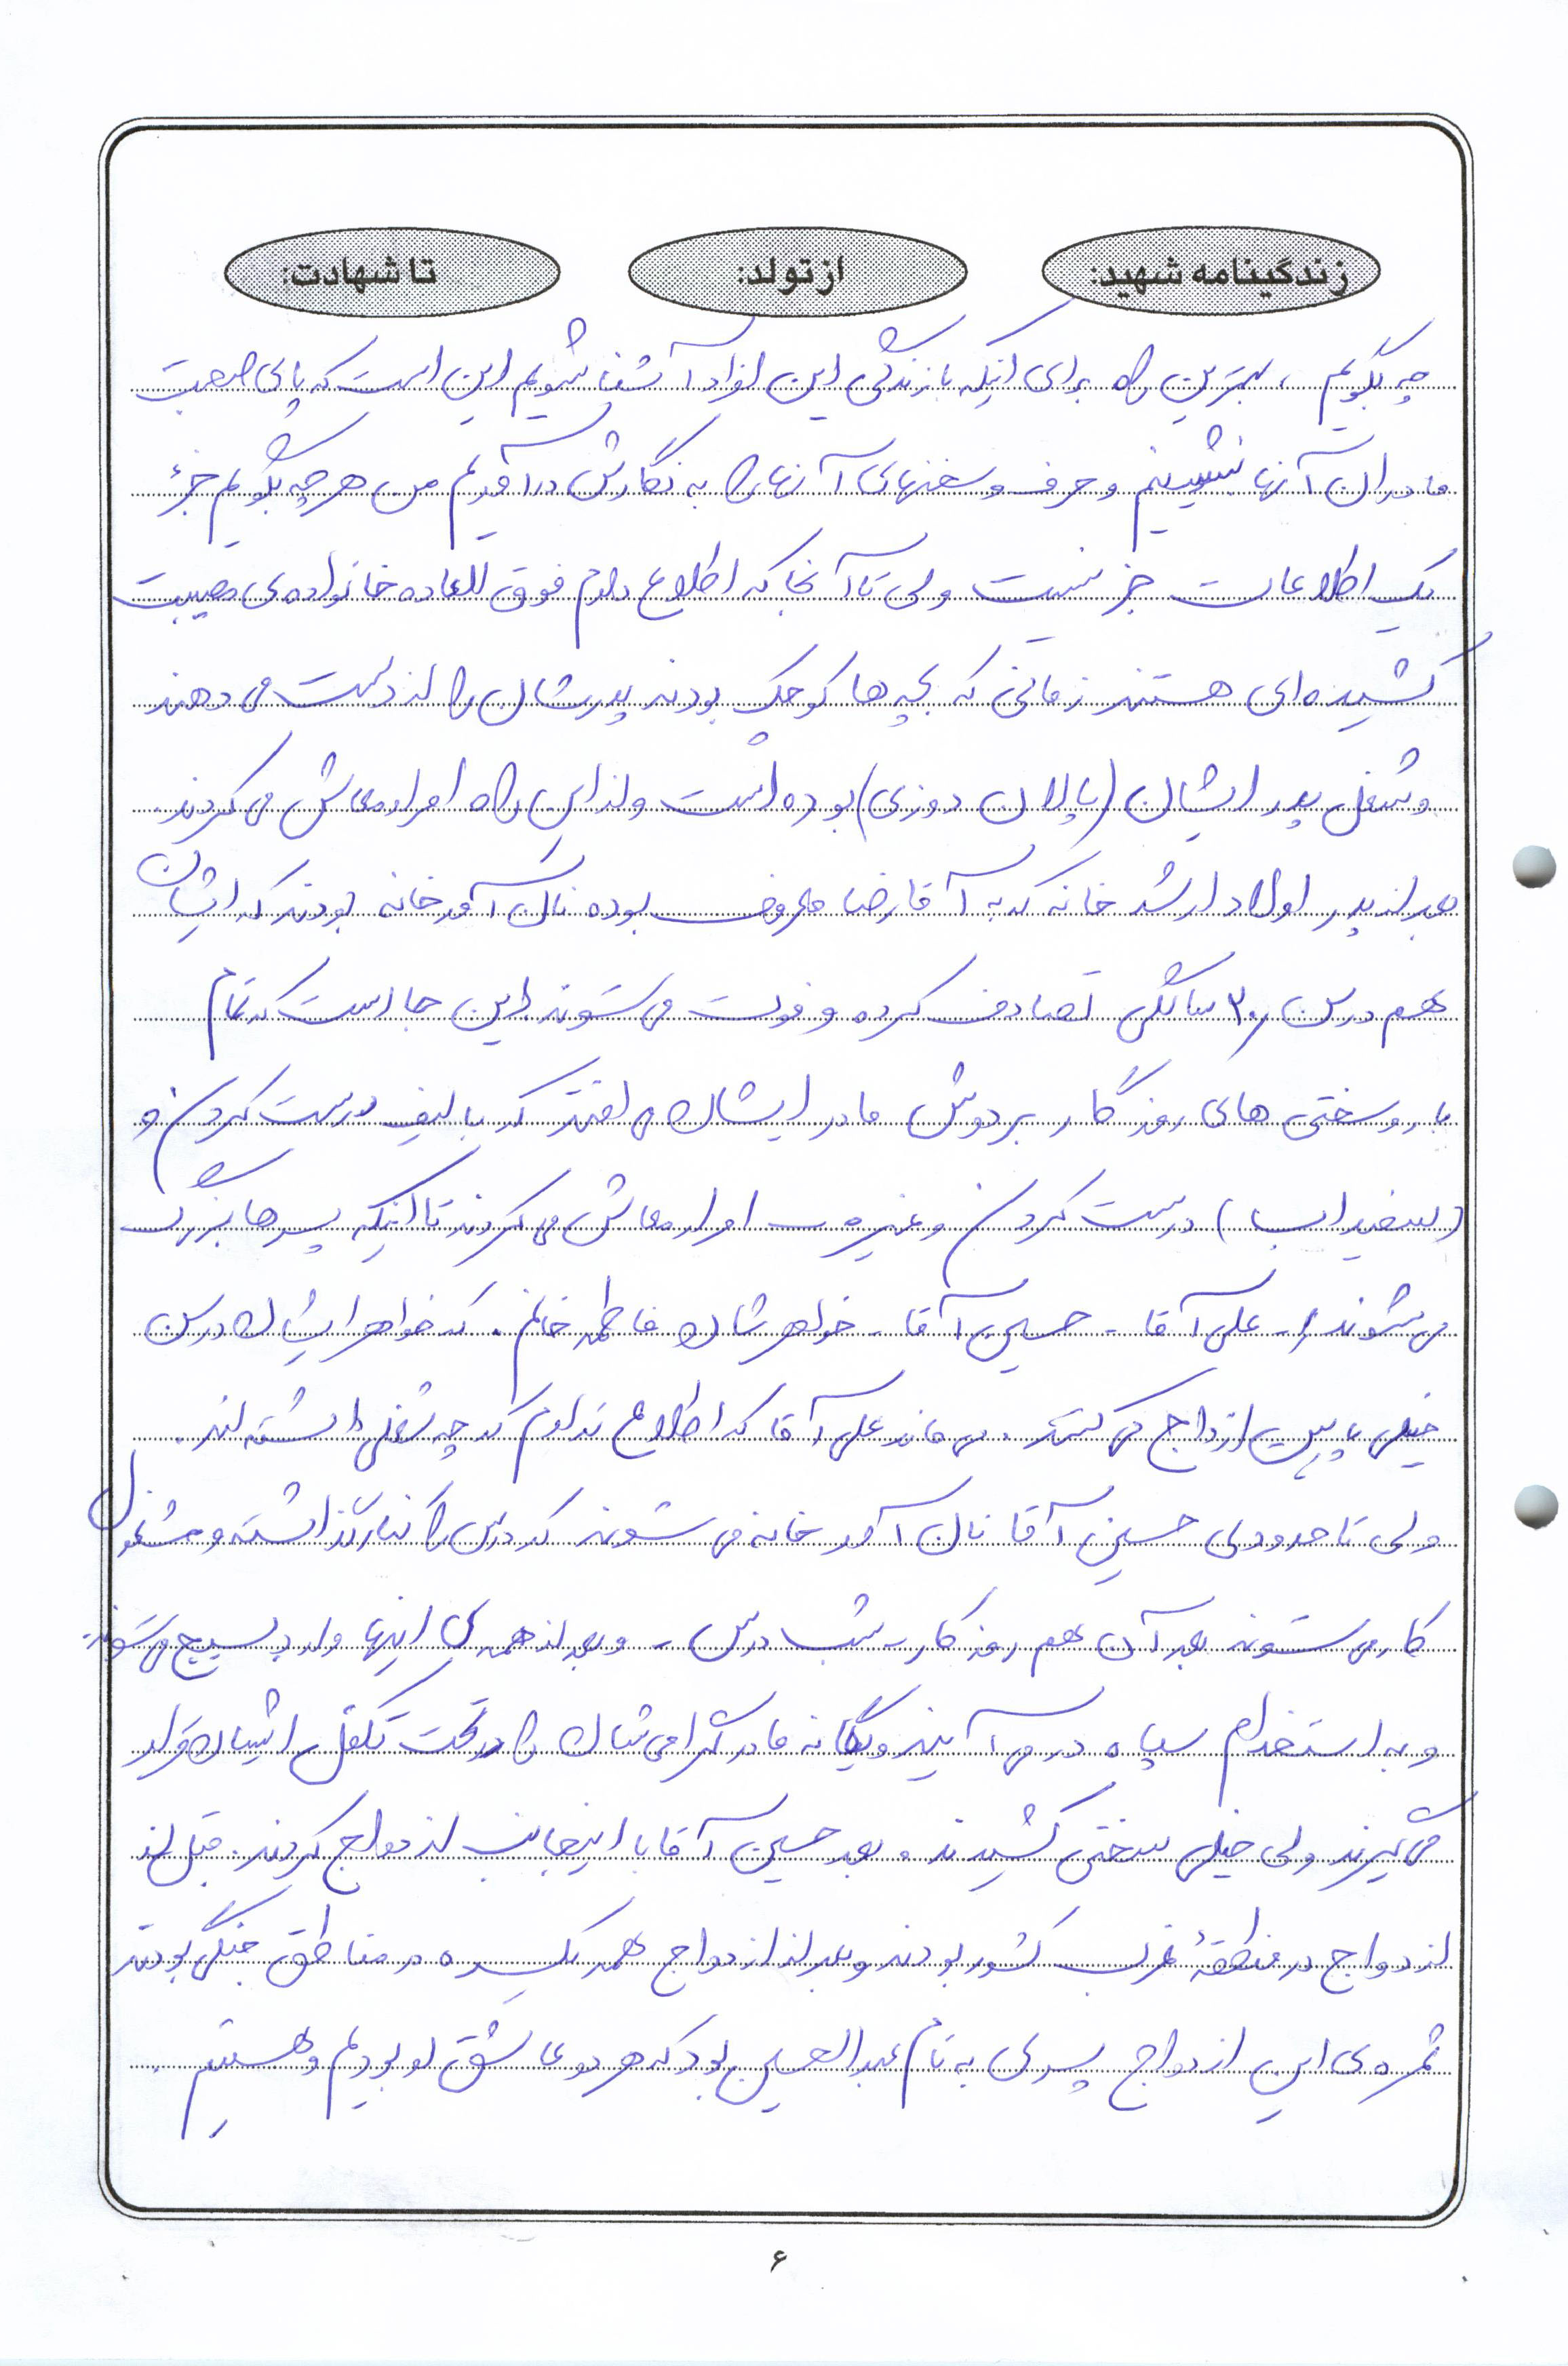 زندگینامه شهید: از تولد: تا شهادت:
چه بگویم، بهترین راه برای اینکه با زندگی این افراد آشنا شویم این است که پای صحبت
مادران آنها بنشینیم و حرف و سخنهای آنها را به نگارش درآوریم من هر چه بگویم جزء
یک اطلاعات جز نیست ولی تا آنجا که اطلاع دارم فوق العاده خانواده ی مصیبت
کشیده ای هستند زمانی که بچه ها کوچک بودند پدرشان را از دست می دهند
و شغل پدر ایشان (پالان دوزی) بوده است و از این راه امرار معاش می کردند.
بعد از پدر اولاد ارشد خانه که به آقا رضا معروف بوده نان آور خانه بودند که ایشان
هم در سن ۳۰ سالگی تصادف کرده و فوت می شوند. این جا است که تمام
بار و سختی های روزگار بر دوش مادر ایشان می افتد که با لیف درست کردن و
(سفیداب) درست کردن و غیره امرار معاش می کردند تا اینکه پسرها بزرگ
می شوند - علی آقا - حسین آقا - خواهرشان فاطمه خانم. که خواهر ایشان در سن
خیلی پایین ازدواج می کنند. می ماند علی آقا که اطلاع ندارم که چه شغلی داشته اند.
ولی تا حدودی حسین آقا نان آور خانه می شوند که درس را کنار گذاشته و مشغول
کار می شوند بعد آن هم روز کار - شب درس - و بعد از همه ی اینها وارد بسیج می شوند.
و به استخدام سپاه در می آیند و یگانه مادر گرامی شان را در تحت تکفل ایشان قرار
می گیرند ولی خیلی سختی کشیدند. بعد حسین آقا با اینجانب ازدواج کردند. قبل از
ازدواج در منطقهٔ غرب کشور بودند و بعد از ازدواج همه یکسره در مناطق جنگی بودند
ثمره ی این ازدواج پسری به نام عبدالحسین بود که هر دو عاشق او بودیم و هستیم.
۶